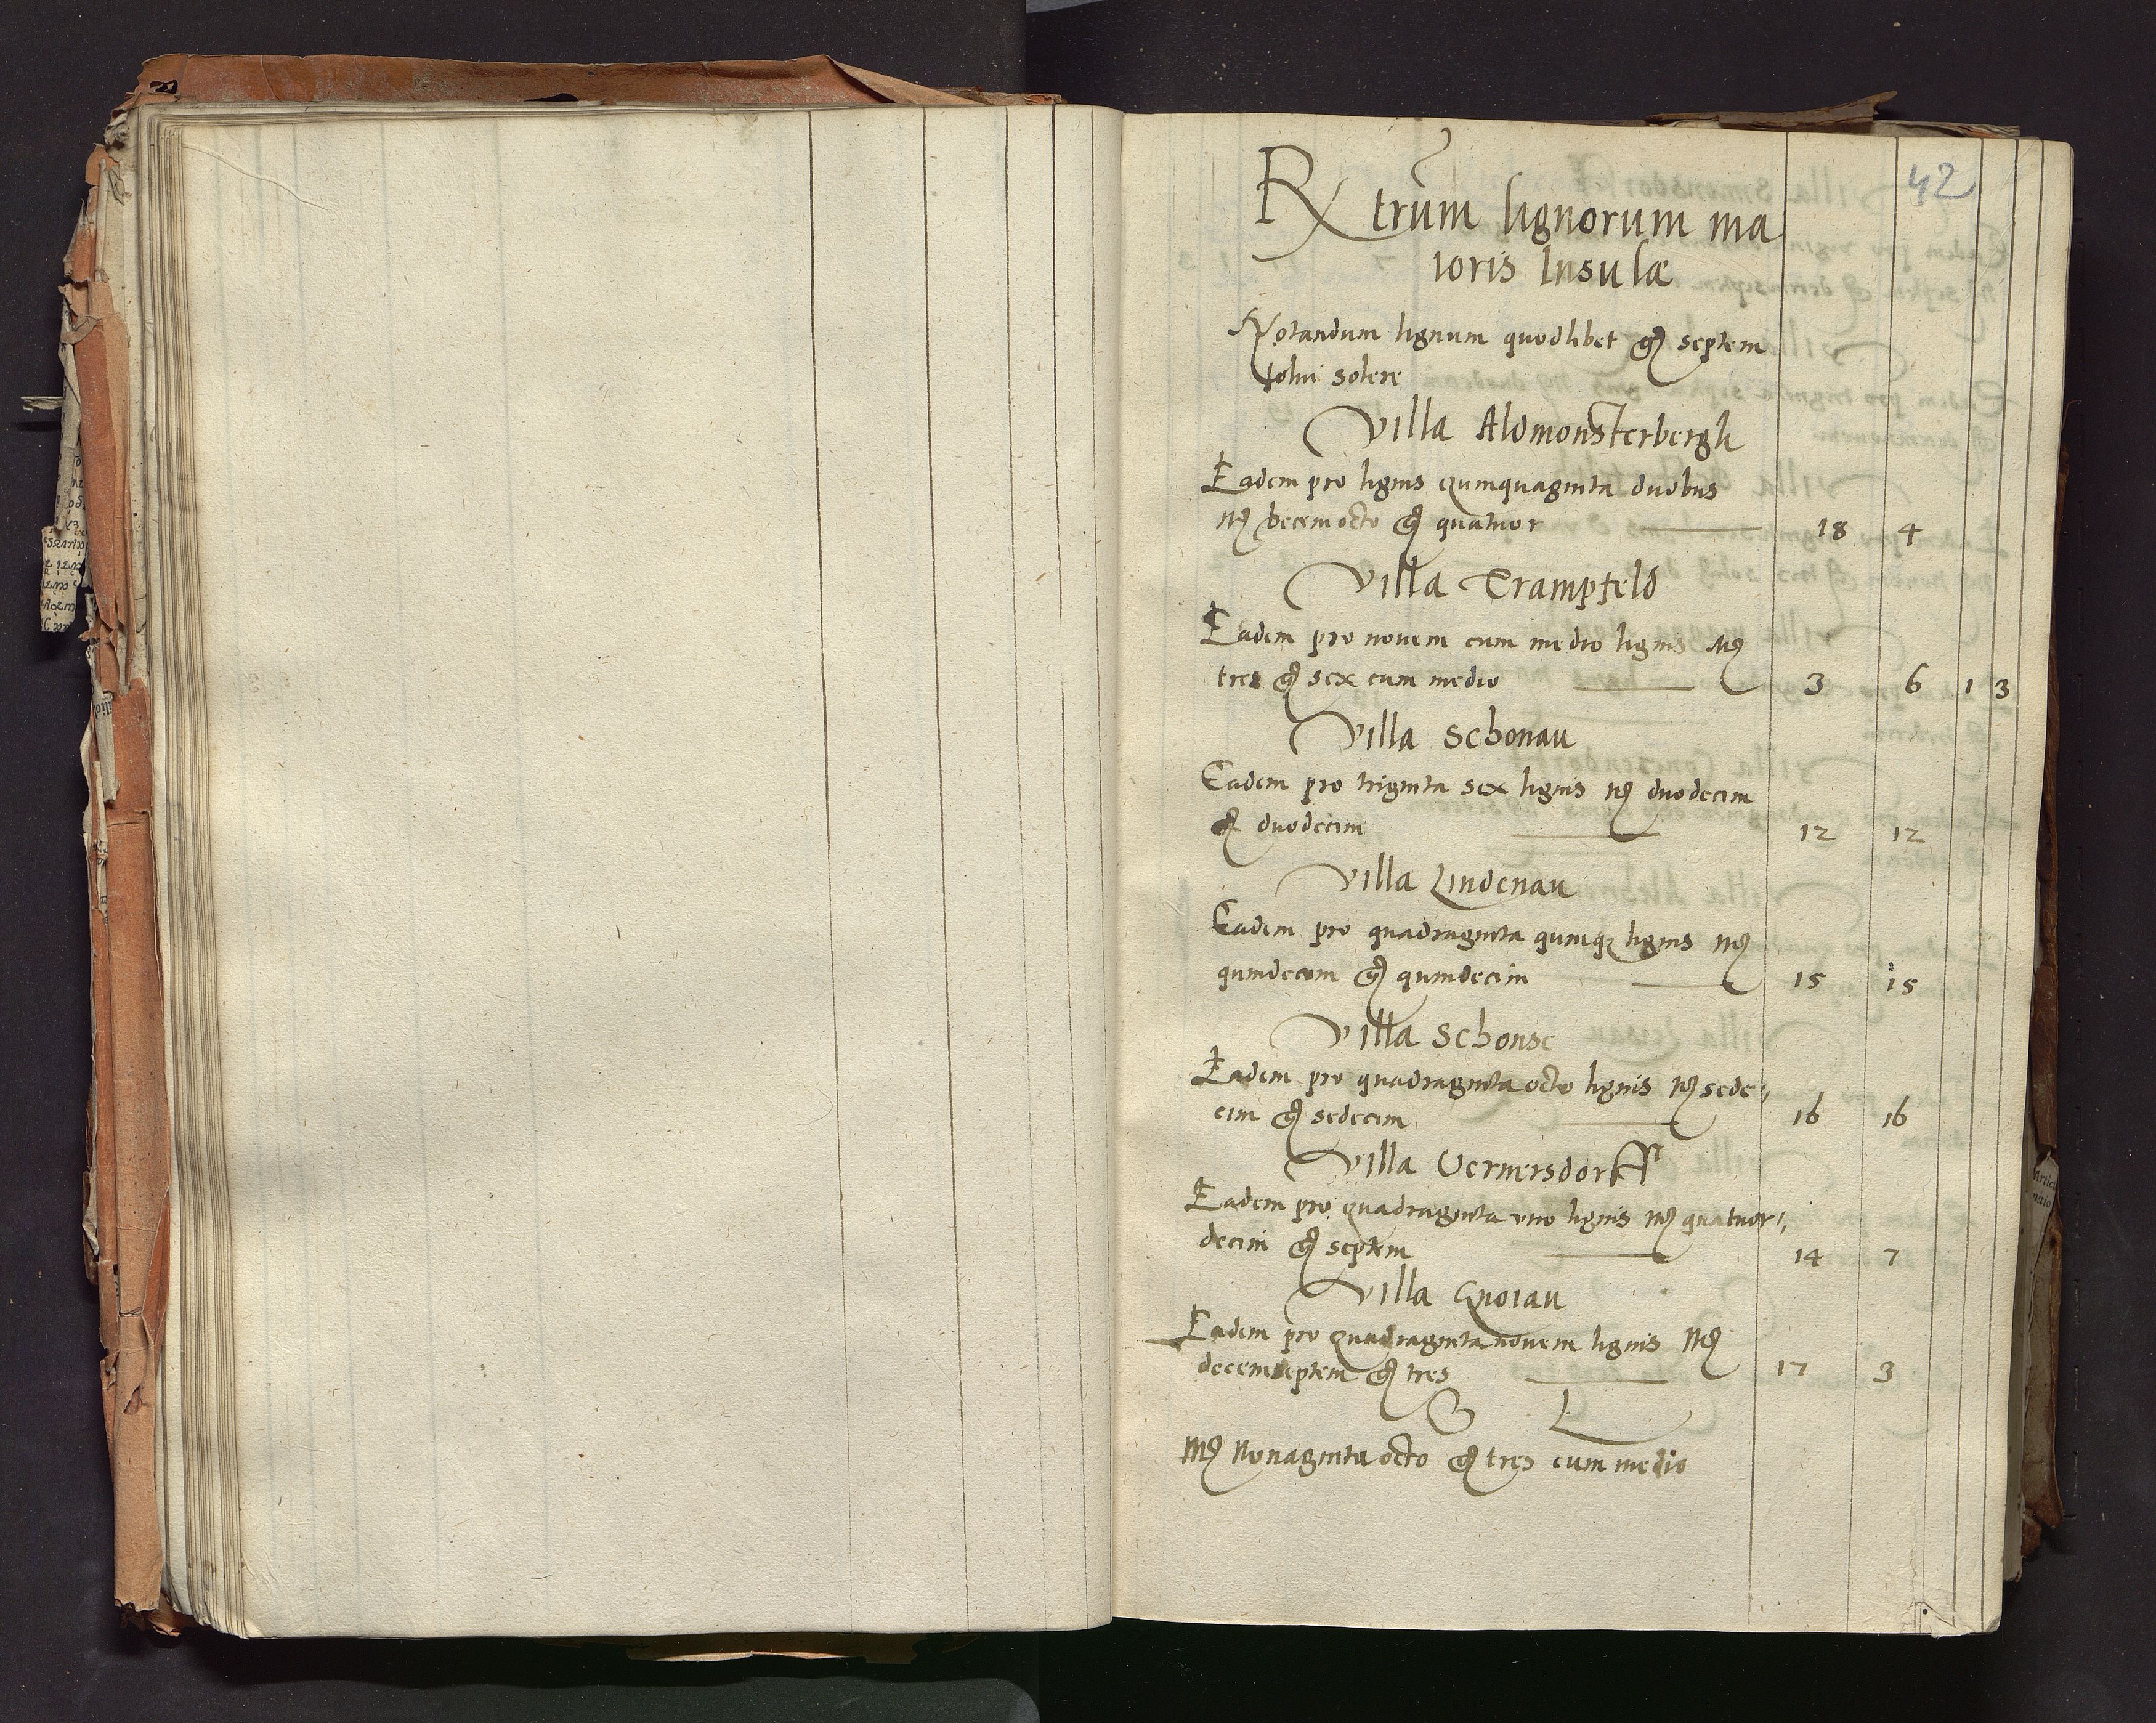 42
Rx trum lignorum ma
ioris Insulæ
Notandum lignum quodlibet g septem
solui solere
Villa Aldmonsterbergh
Eadem pro lignis quinquaginta duobus
mr decemocto g quatuor 18 4
Villa Trampfeld
Eadem pro nouem cum medio lignis mr
tres g sex cum medio 3 6 1 3
Villa Schonau
Eadem pro triginta sex lignis mr duodecim
g duodecim 12 12
Villa Lindenau
Eadem pro quadraginta quinqꝫ lignis mr
quindecim g quindecim 15 15
Villa Schonse
Eadem pro quadraginta octo lignis mr sede⸗
cim g sedecim 16 16
Villa Vernersdorff
Eadem pro quadraginta uno lignis mr quatuor⸗
decim g septem 14 7
Villa Gnoiau
Eadem pro quadraginta novem lignis mr
decemseptem g tres 17 3
mr Nonaginta octo g tres cum medio